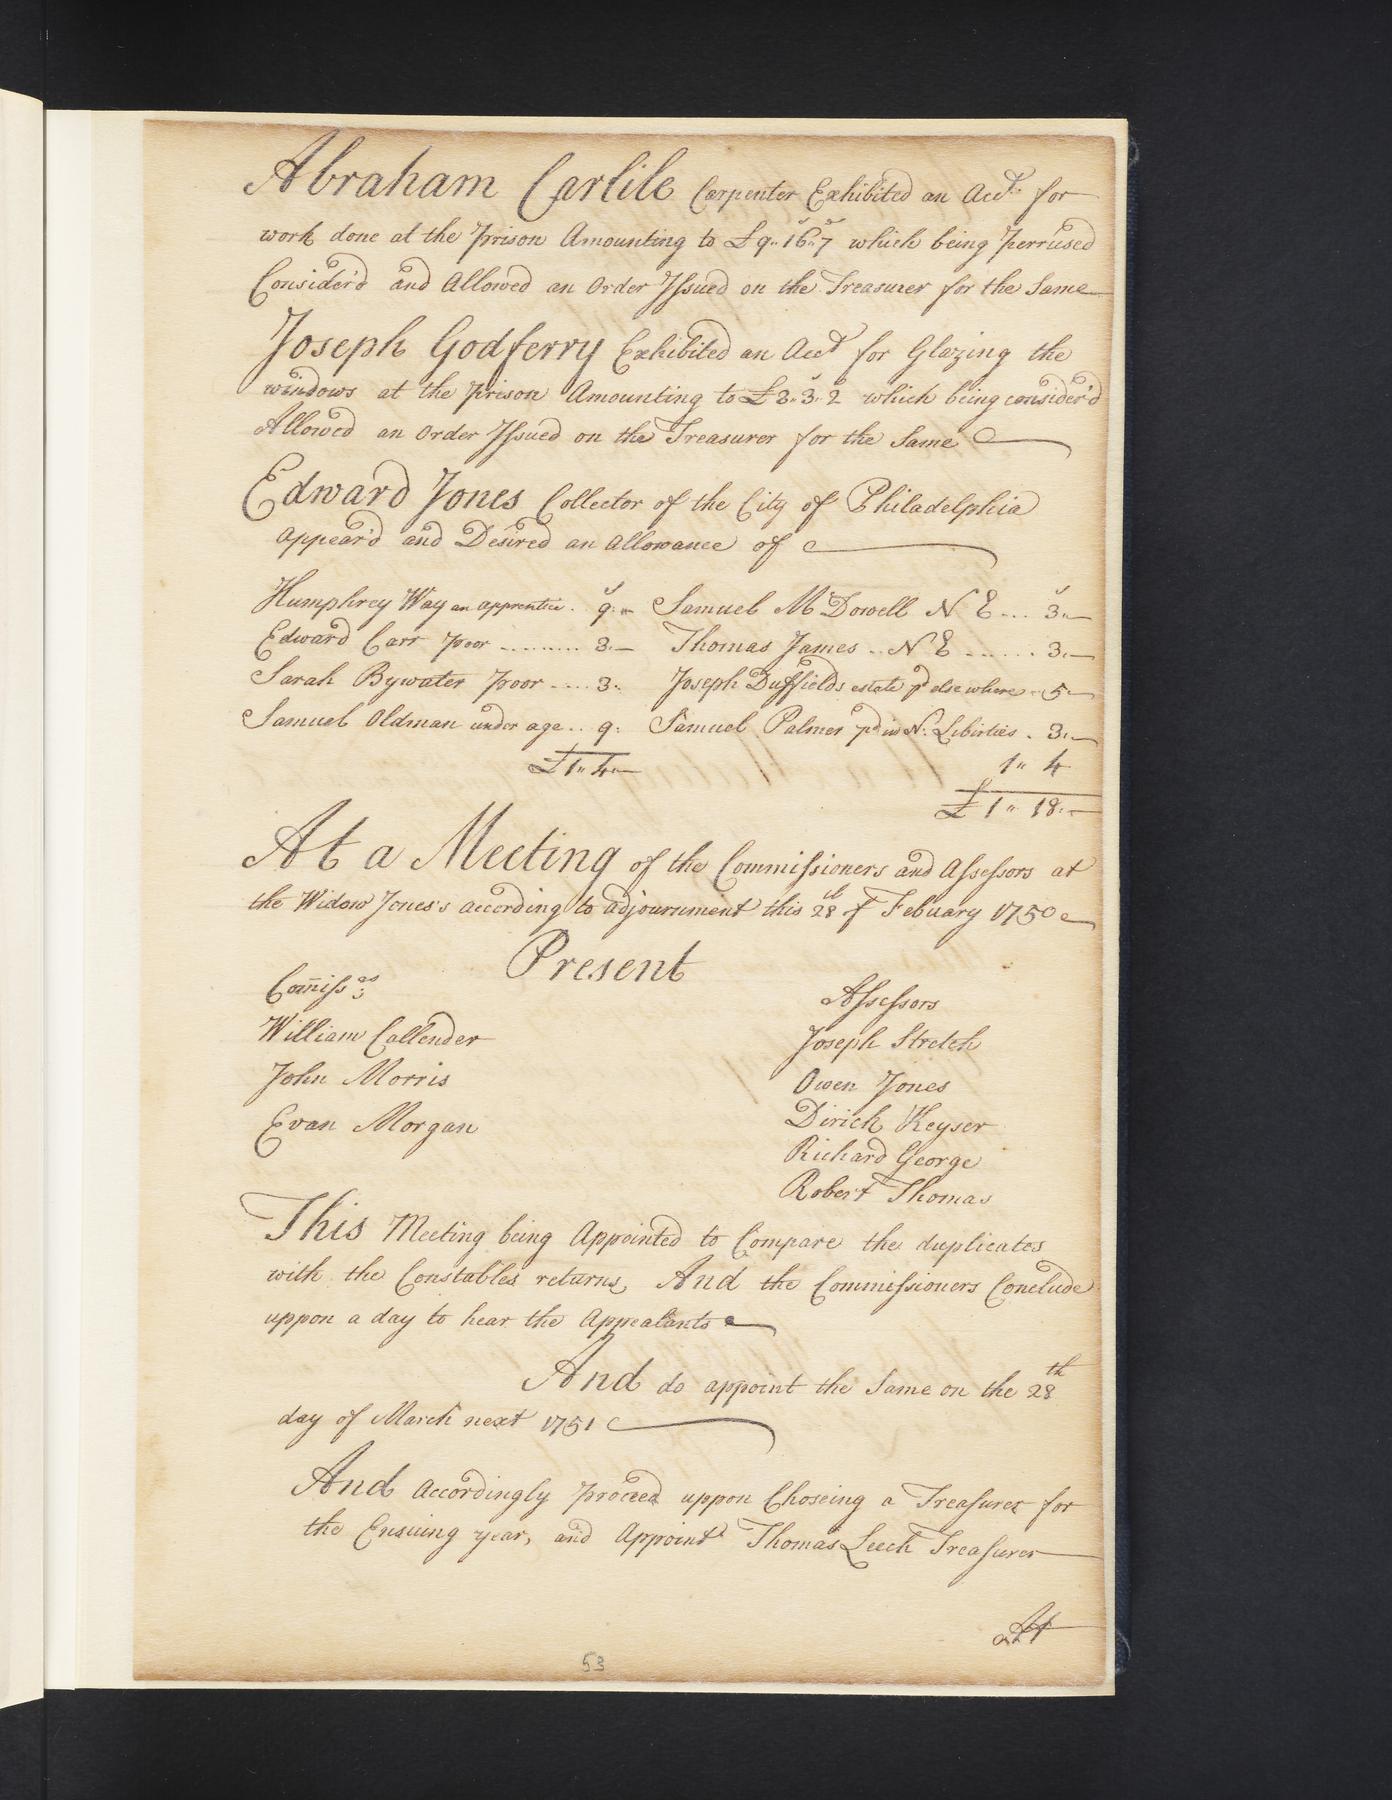 Abraham Carlile Carpenter Exhibited an Acct. for
work done at the Prison Amounting to £9..16..7 which being Perrused
Consider'd and Allowed an Order Issued on the Treasurer for the Same
Joseph Godferry Exhibited an Acct for Glazing the
windows at the Prison Amounting to £3..3..2 which being consider'd
Allowed an Order Issued on the Treasurer for the Same
Edward Jones Collector of the City of Philadelphia
Appear'd and Desired an Allowance of
Humphrey Way an apprentice . 9.. Samuel McDowell N E ... 3..
Edward Carr Poor ......... 3.. Thomas James .. N E ...... 3..
Sarah Bywater Poor .... 3.. Joseph Duffields estate pd elsewhere .. 5..
Samuel Oldman under age .. 9. Samuel Palmer pd in N. Liberties . 3..
£1.. 4.. 1.. 4
£1.. 18..
At a Meeting of the Commissioners and Assessors at
the Widow Jones's according to adjournment this 28th of Febuary 1750
Present
Comissrs
Assessors
William Callender
Joseph Stretch
John Morris
Owen Jones
Evan Morgan
Dirich Keyser
Richard George
Robert Thomas
This Meeting being Appointed to Compare the duplicates
with the Constables returns, And the Commissioners Conclude
uppon a day to hear the Appealants
And do appoint the Same on the 28th
day of March next 1751
And Accordingly Proceed uppon Choseing a Treasurer for
the Ensuing year, and Appointd Thomas Leech Treasurer
At
53